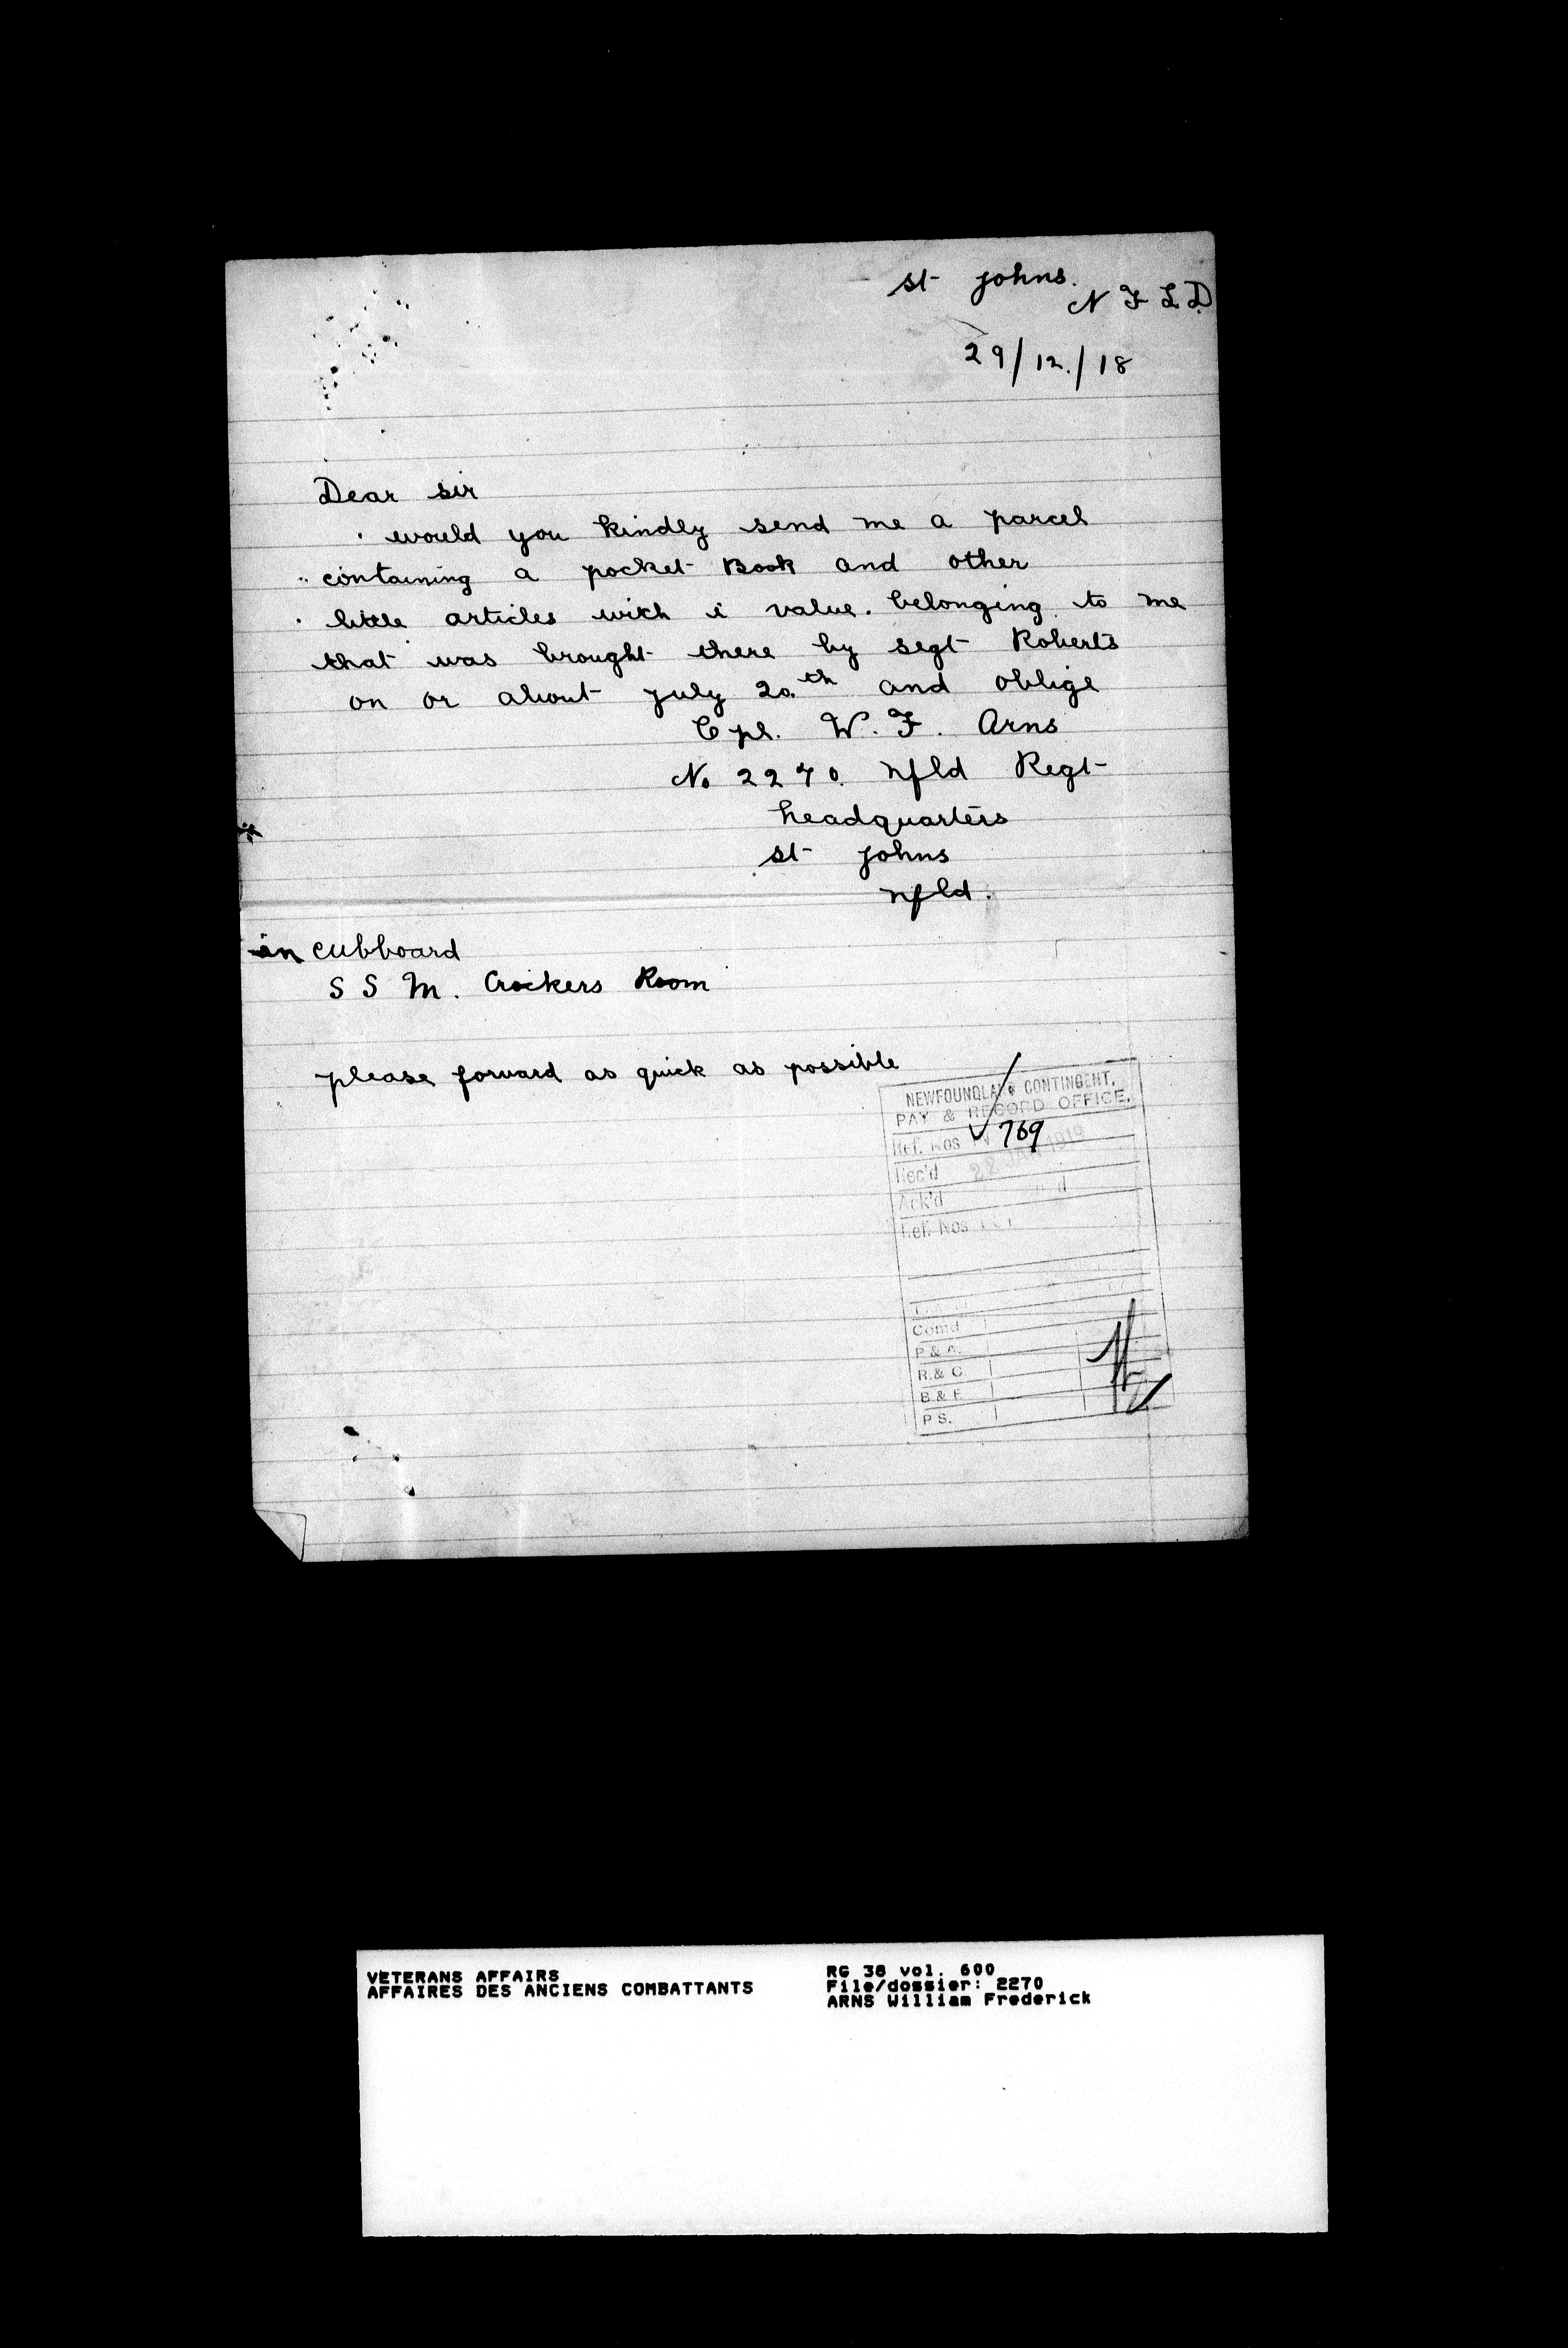 st johns.
N F L D.
29/12./18
Dear sir
would you kindly send me a parcel
containing a pocket Book and other
little articles wich i value. belonging to me
that was brought there by segt Roberts
on or about july 20th and oblige
Cpl. W. F. Arns
No 2270. Nfld Regt
headquarters
st johns
Nfld.
in cubboard
S S M. Crockers Room
please forward as quick as possible
NEWFOUNDLAND CONTINGENT.
PAY & RECORD OFFICE.
Ref. Nos 769
Rec'd 22 JAN 1919
Ack'd
Ref. Nos
Comd
P & A.
R. & C.
B & F
P S.
VETERANS AFFAIRS
AFFAIRES DES ANCIENS COMBATTANTS
RG 38 vol. 600
File/dossier: 2270
ARNS William Frederick